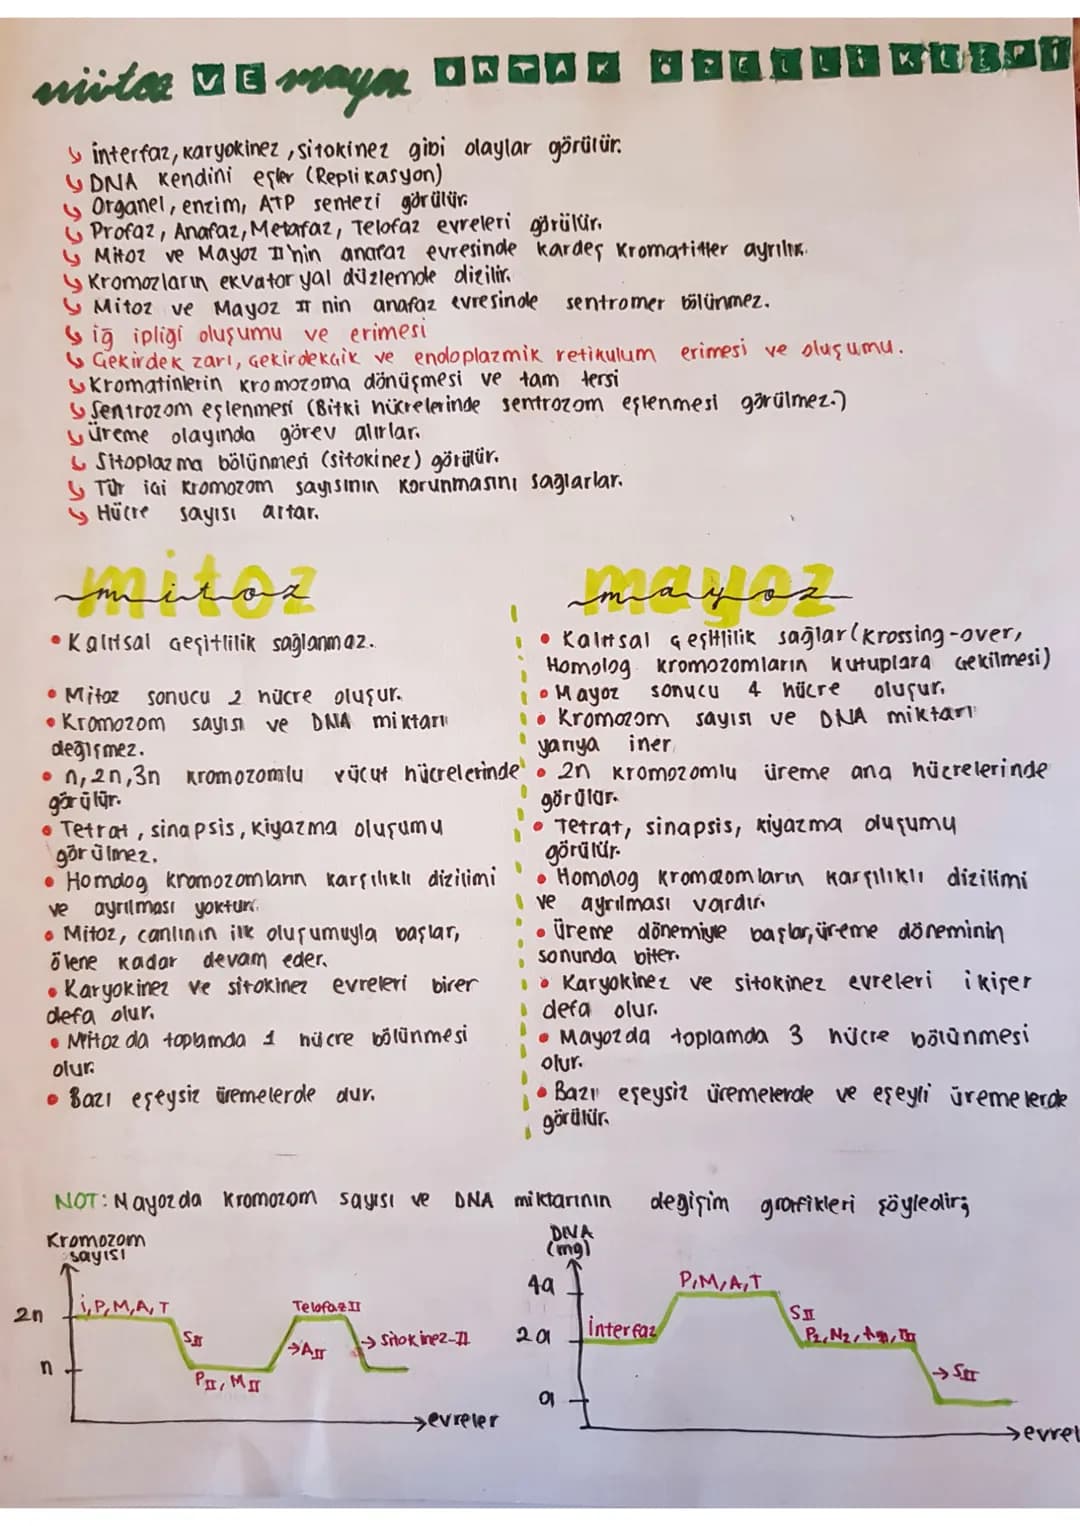 mitoz VE mayoz ORTAK ÖZELLİKLERİ
interfaz, karyokinez, sitokinez gibi olaylar görülür.
DNA kendini eşler (Replikasyon)
Organel, enzim, ATP sentezi görülür.
Profaz, Anafaz, Metafaz, Telofaz evreleri görülür.
Mitoz ve Mayoz II'nin anafaz evresinde kardeş kromatitler ayrılır.
Kromozların ekvatoryal düzlemde dizilir.
Mitoz ve Mayoz II nin anafaz evresinde sentromer bölünmez.
iğ ipliği oluşumu ve erimesi
Çekirdek zarı, çekirdekçik ve endoplazmik retikulum erimesi ve oluşumu.
Kromatinlerin kromozoma dönüşmesi ve tam tersi
Sentrozom eşlenmesi (Bitki hücrelerinde sentrozom eşlenmesi görülmez.)
Üreme olayında görev alırlar.
Sitoplazma bölünmesi (sitokinez) görülür.
Tür içi kromozom sayısının korunmasını sağlarlar.
Hücre sayısı artar.
mitoz
mitoz
• Kalıtsal çeşitlilik sağlanmaz.
• Mitoz sonucu 2 hücre oluşur.
• Kromozom sayısı ve DNA miktarı
değişmez.
• n, 2n, 3n kromozomlu vücut hücrelerinde
görülür.
• Tetrat, sinapsis, kiyazma oluşumu
görülmez.
• Homolog kromozomların karşılıklı dizilimi
ve ayrılması yoktur.
• Mitoz, canlının ilk oluşumuyla başlar,
ölene kadar devam eder.
• Karyokinez ve sitokinez evreleri birer
defa olur.
• Mitoz da toplamda 1 hücre bölünmesi
olur.
• Bazı eşeysiz üremelerde olur.
mayoz
mayoz
• Kalıtsal çeşitlilik sağlar (krossing-over,
Homolog kromozomların kutuplara çekilmesi)
• Mayoz sonucu 4 hücre oluşur.
• Kromozom sayısı ve DNA miktarı
yarıya iner.
• 2n kromozomlu üreme ana hücrelerinde
görülür.
• Tetrat, sinapsis, kiyazma oluşumu
görülür.
• Homolog kromozomların karşılıklı dizilimi
ve ayrılması vardır.
• Üreme dönemiyle başlar, üreme döneminin
sonunda biter.
• Karyokinez ve sitokinez evreleri ikişer
defa olur.
• Mayozda toplamda 3 hücre bölünmesi
olur.
• Bazı eşeysiz üremelerde ve eşeyli üremelerde
görülür.
NOT: Mayozda kromozom sayısı ve DNA miktarının değişim grafikleri şöyledir;
Kromozom
sayısı
2n
n
i, P, M, A, T
SII
PII, MII
→AII
Telofaz II
→ Sitokinez-II
→evreler
DNA
(mg)
4a
2a
a
interfaz
P, M, A, T
SII
P2, M2,
→ SII
→evrel